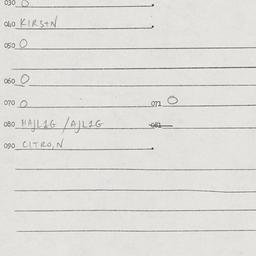 030 O
040 KIRS+N
050 O
060 O
070 O 071 O
080 HAJL1G / AJL1G 081
090 CITRO,N